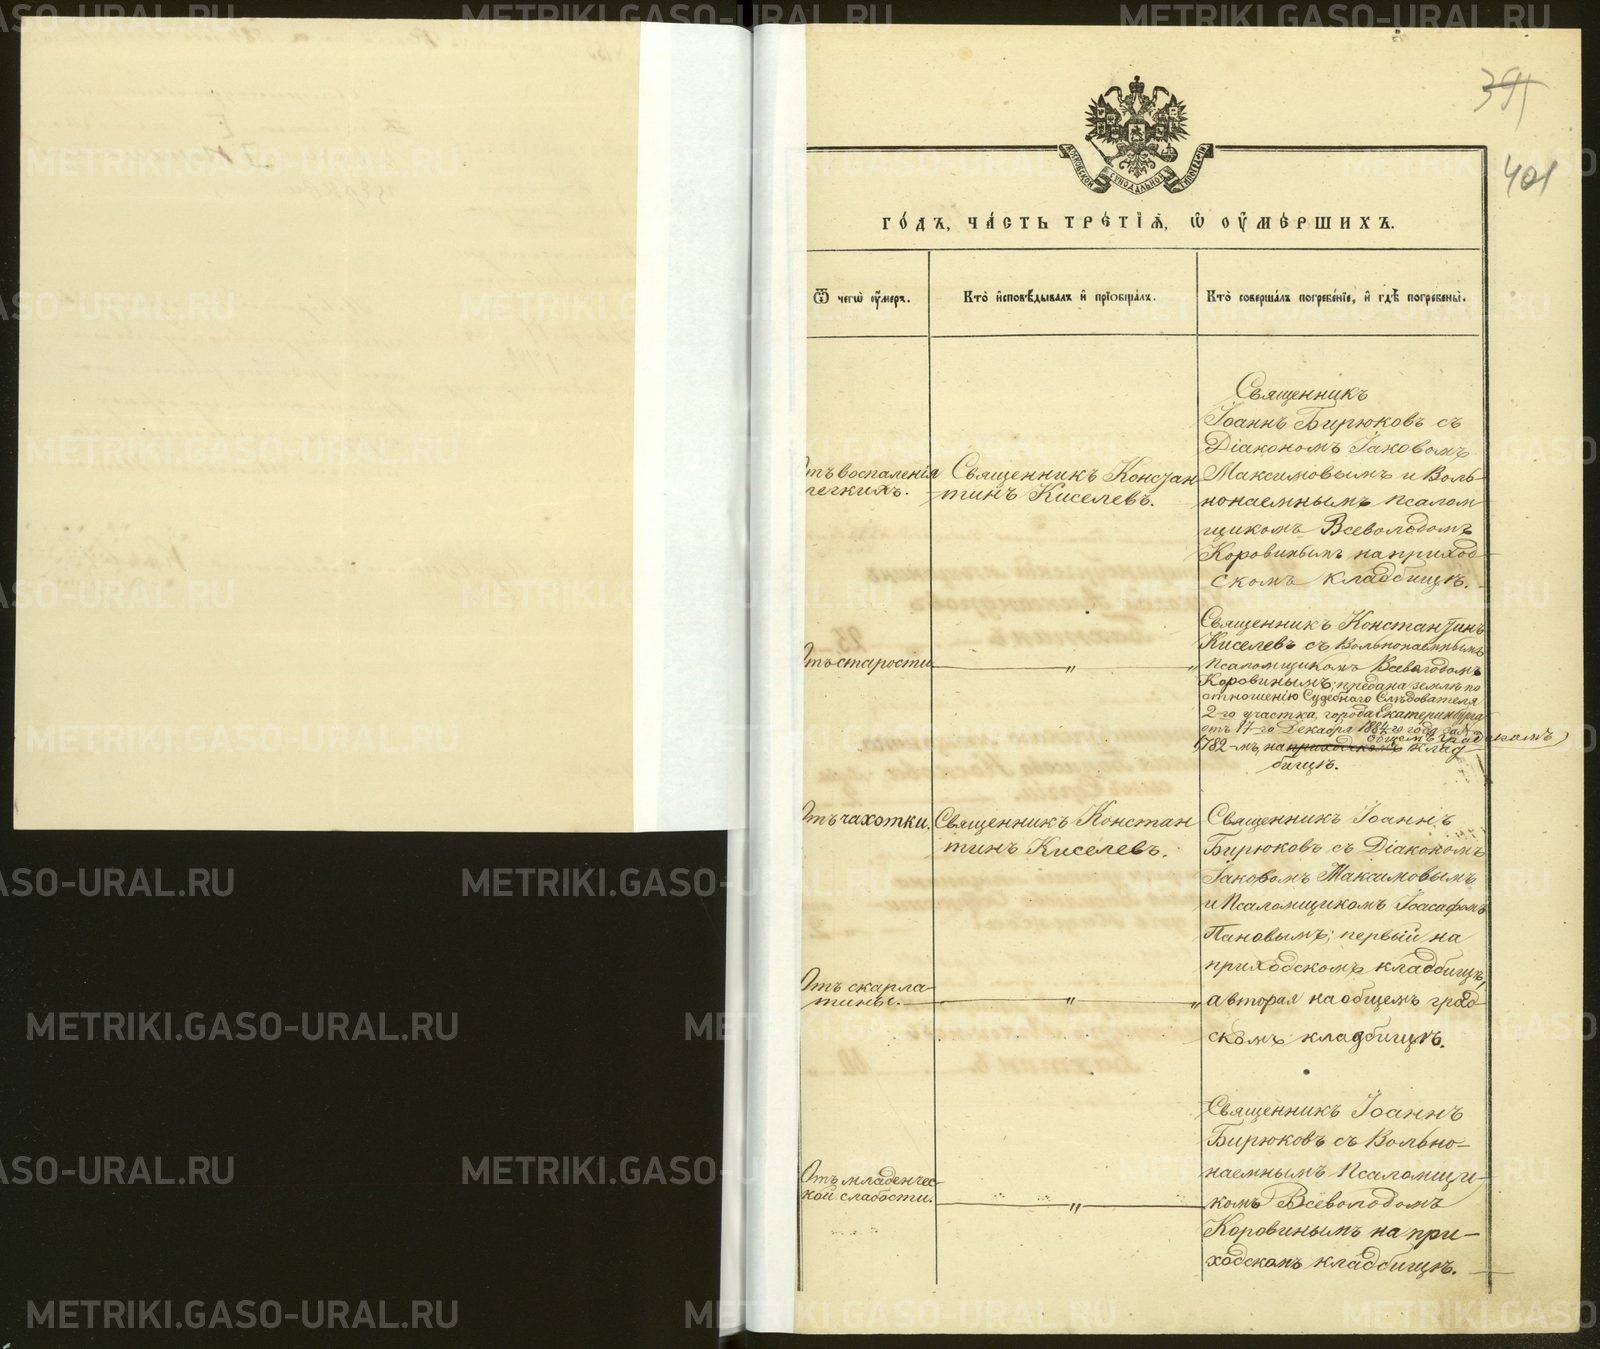 391
401
МОСКОВСКОЙ СѴНОДАЛЬНОЙ ТИПОГРАФІИ
ГО́ДЪ, ЧА́СТЬ ТРЕ́ТІѦ, Ѽ ОУ҆МЕ́РШИХЪ.
Ѿ чегѡ̀ оу҆́меръ.
Кто̀ и҆сповѣ́дывалъ и҆ прїѻбща́лъ.
Кто̀ соверша́лъ погребе́нїе, и҆ гдѣ̀ погребены̀.
Отъ воспаленія
легкихъ.
Священникъ Констан
тинъ Киселевъ.
Священникъ
Іоаннъ Бирюковъ съ
Діакономъ Іаковомъ
Максимовымъ и Воль
нонаемнымъ псалом
щикомъ Всеволодомъ
Коровинымъ на приход-
скомъ кладбищѣ.
Отъ старости
„
„
Священникъ Константинъ
Киселевъ съ Вольнонаемнымъ
Псаломщикомъ Всеволодомъ
Коровинымъ; предана землѣ по
отношенію Судебнаго Слѣдователя
2-го участка, города Екатеринбурга
отъ 17-го Декабря 1884-го года за №
общемъ градскомъ
1782-мъ, на приходскомъ клад-
бищѣ.
Отъ чахотки.
Священникъ Констан
тинъ Киселевъ.
Священникъ Іоаннъ
Бирюковъ съ Діакономъ
Іаковомъ Максимовымъ
и Псаломщикомъ Іоасафомъ
Пановымъ; первый на
приходскомъ кладбищѣ,
а вторая на общемъ град-
скомъ кладбищѣ.
Отъ скарла-
тины.
„
„
Отъ младенчес-
кой слабости.
„
Священникъ Іоаннъ
Бирюковъ съ Вольно-
наемнымъ Псаломщи-
комъ Всеволодомъ
Коровинымъ на при-
ходскомъ кладбищѣ.
METRIKI.GASO-URAL.RU